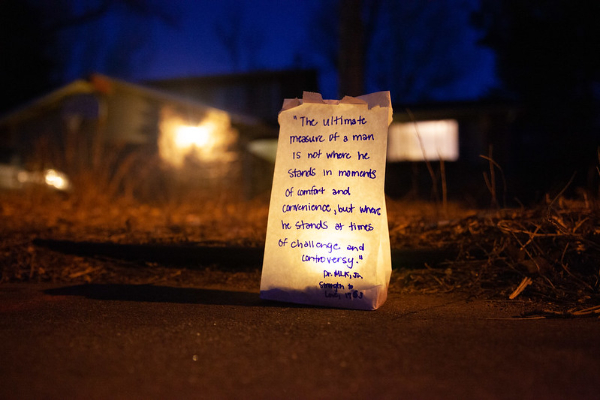 "The ultimate
measure of a man
is not where he
stands in moments
of comfort and
convenience, but where
he stands at times
of challenge and
controversy."
Dr. MLK, Jr.
Strength to
Love, 1963